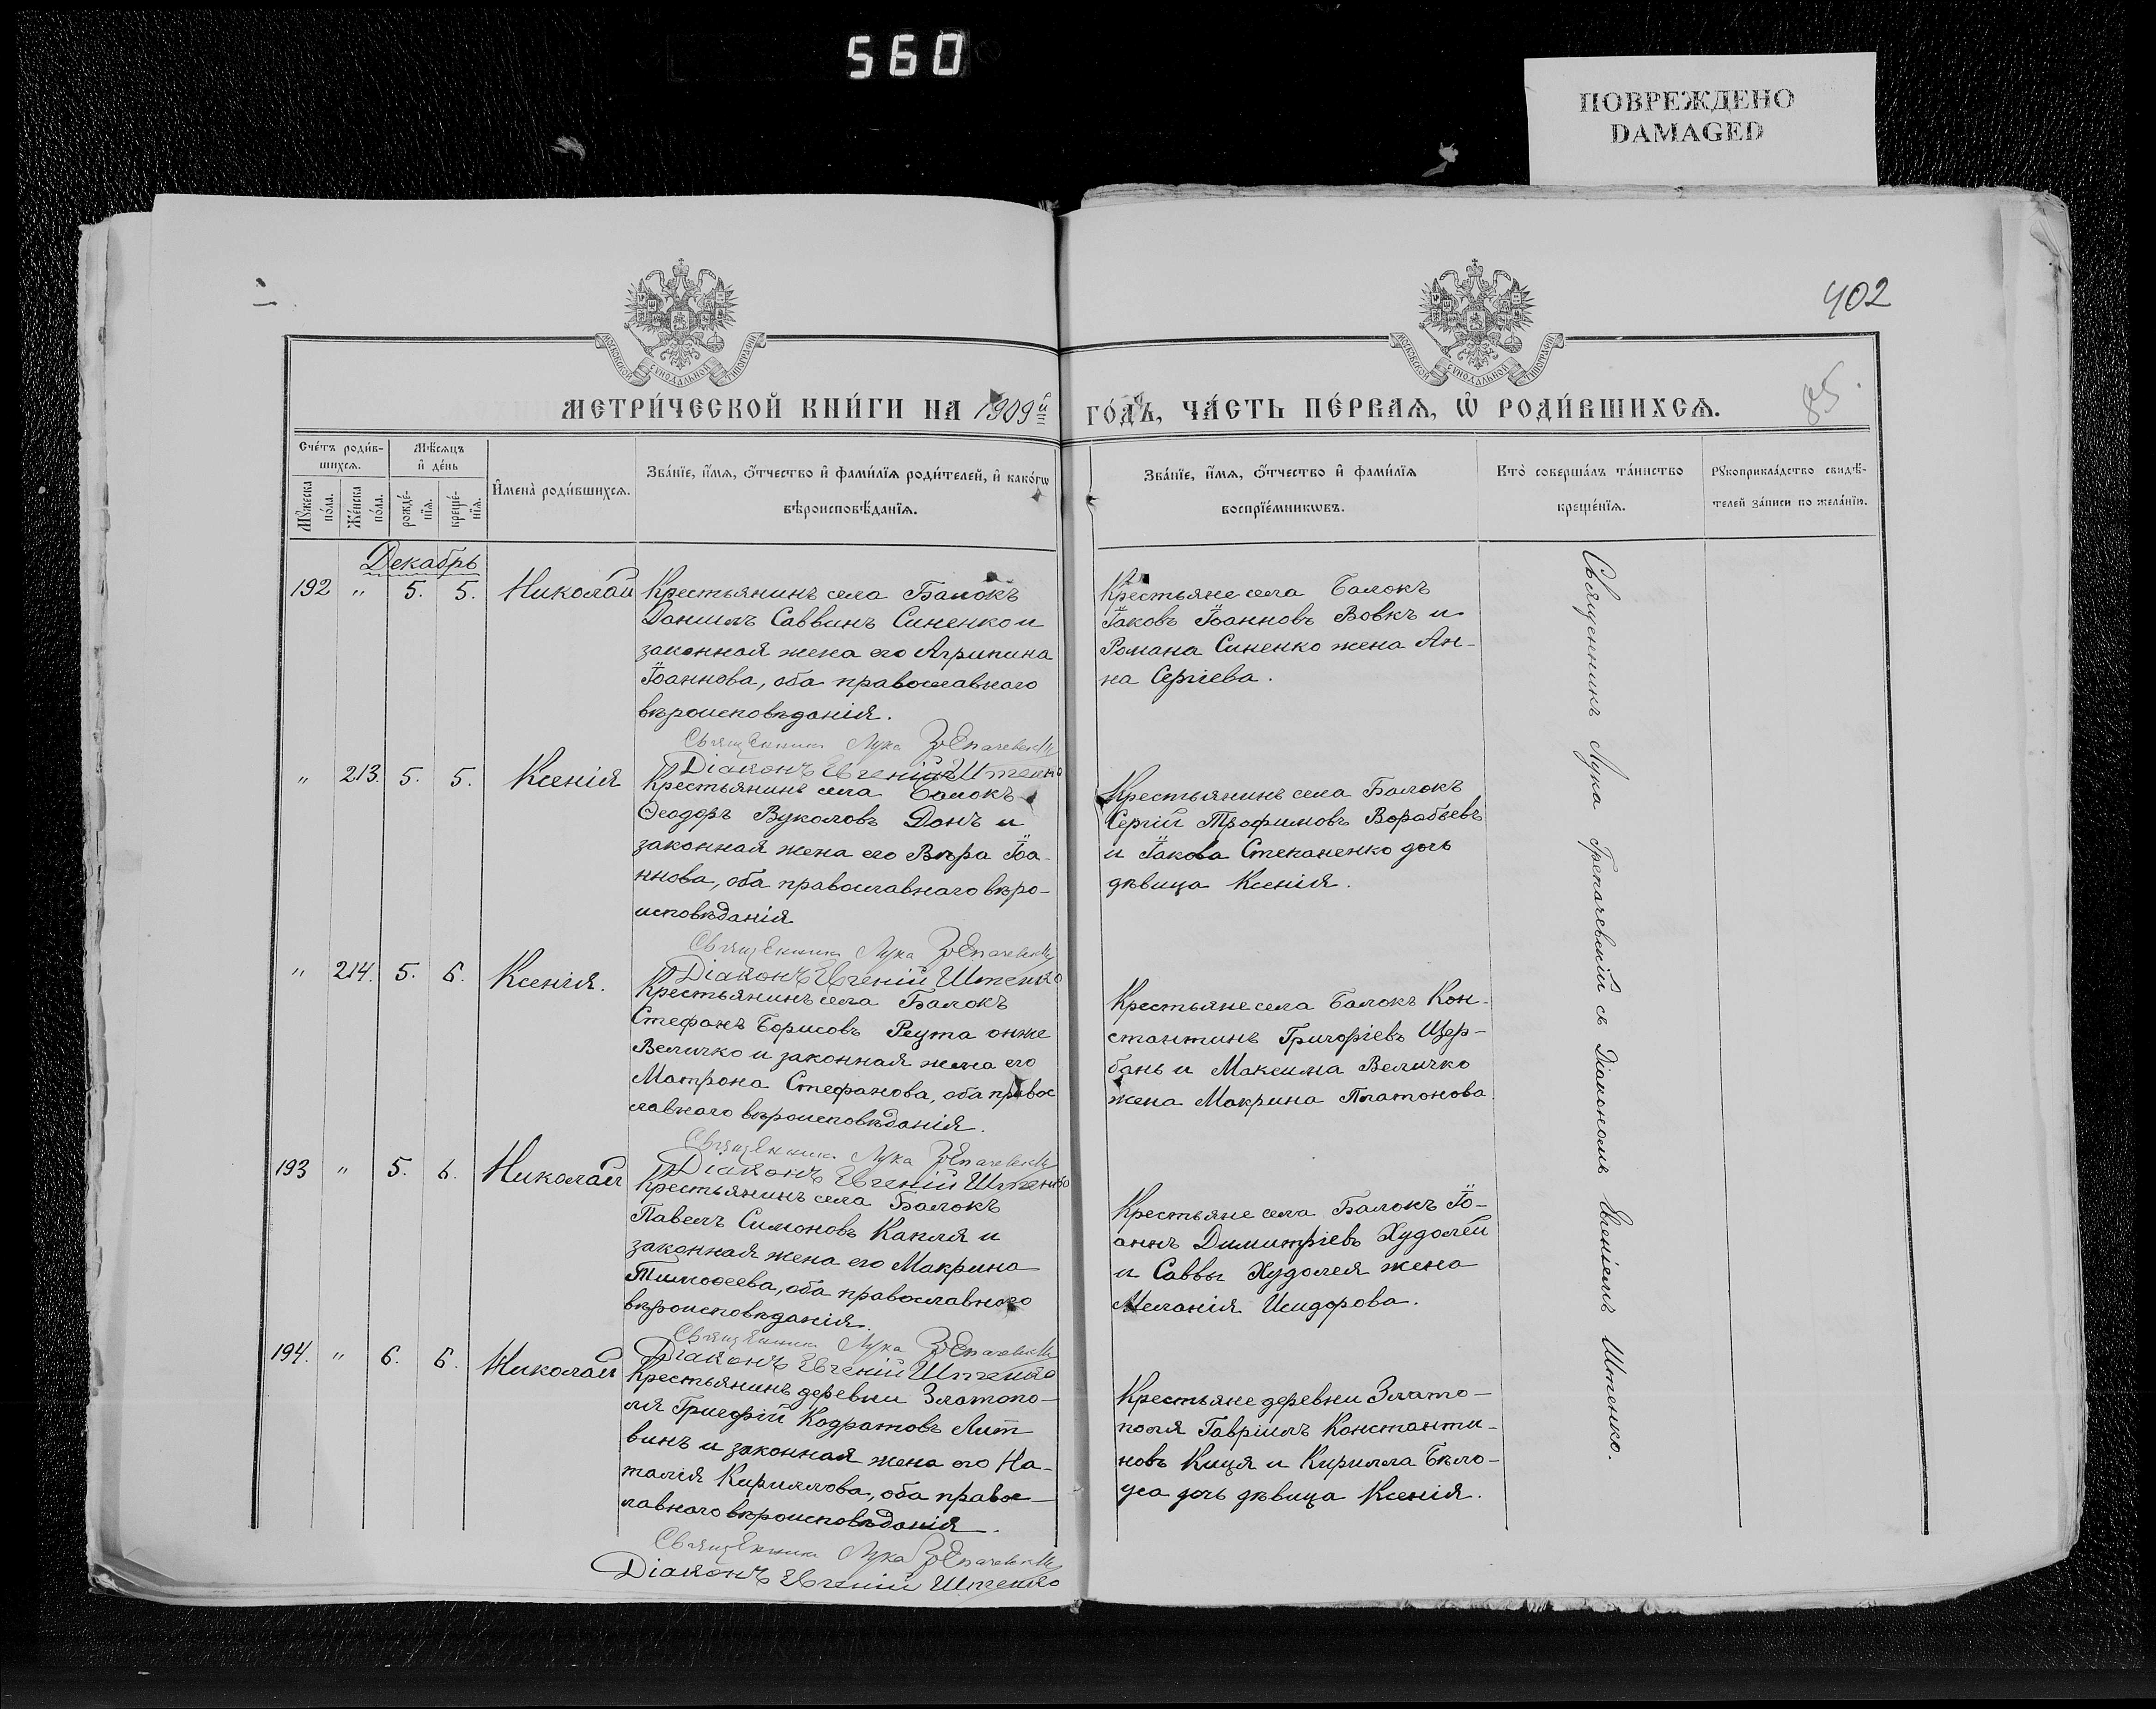 560
ПОВРЕЖДЕНО
DAMAGED
402
85.
МЕТРИ́ЧЕСКОЙ КНИ́ГИ НА 1909й
ГО́ДЪ, ЧА́СТЬ ПЕ́РВАѦ, Ѿ РОДИ́ВШИХСѦ.
Сче́тъ роди́в-
шихсѧ.
Мѣ́сѧцъ
и де́нь
Мꙋжеска
по́ла.
Же́нска
по́ла.
рожде́-
нїѧ.
креще́-
нїѧ.
Имена̀ роди́вшихсѧ.
Зва́нїе, и́мѧ, о́тчество и фами́лїѧ роди́телей, и како́гѡ
вѣроисповѣ́данїѧ.
Зва́нїе, и́мѧ, о́тчество и фами́лїѧ
воспрїе́мникѡвъ.
Кто̀ соверша́лъ та́инство
креще́нїѧ.
Рꙋкоприкла́дство свидѣ́-
телей за́писи по жела́нїю.
Декабрь
192 " 5. 5. Николай
Крестьянинъ села Балокъ
Данiилъ Саввинъ Синенко и
законная жена его Агрипина
Іоаннова, оба православнаго
вѣроисповѣданія.
Священникъ Лука
Діаконъ Евгеній Штенко
Крестьяне села Балокъ
Іаковъ Іоанновъ Вовкъ и
Романа Синенко жена Ан-
на Сергіева.
" 213. 5. 5. Ксенія
Крестьянинъ села Балокъ
Ѳеодоръ Вуколовъ Донъ и
законная жена его Вѣра Іоа-
ннова, оба православнаго вѣро-
исповѣданія
Священникъ Лука
Діаконъ Евгеній Штенко
Крестьянинъ села Балокъ
Сергій Трофимовъ Воробьевъ
и Іакова Степаненко дочь
дѣвица Ксенія.
" 214. 5. 6. Ксенія.
Крестьянинъ села Балокъ
Стефанъ Борисовъ Реута онже
Величко и законная жена его
Матрона Стефанова, оба правос
лавнаго вѣроисповѣданія.
Священникъ Лука
Діаконъ Евгеній Штенко
Крестьяне села Балокъ Кон-
стантинъ Григоріевъ Щер-
бань и Максима Величко
жена Макрина Платонова.
193 " 5. 6. Николай
Крестьянинъ села Балокъ
Павелъ Симоновъ Капля и
законная жена его Макрина
Тимоѳеева, оба православнаго
вѣроисповѣданія.
Священникъ Лука
Діаконъ Евгеній Штенко
Крестьяне села Балокъ Іо-
аннъ Димитріевъ Худолей
и Саввы Худолея жена
Меланія Исидорова.
194. " 6. 6. Николай
Крестьянинъ деревни Златопо-
ля Григорій Кодратовъ Лит
винъ и законная жена его На-
талія Кириллова, оба правос-
лавнаго вѣроисповѣданія.
Священникъ Лука
Діаконъ Евгеній Штенко
Крестьяне деревни Злато-
поля Гавріилъ Константи-
новъ Куця и Кирилла Бѣло-
уса дочь дѣвица Ксенія.
Священникъ Лука Грепачевскій съ Діакономъ Евгеніемъ Штенко.